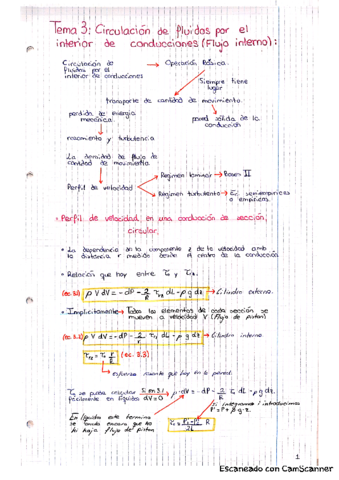 Tema 3: Circulación de fluidos por el
interior de conducciones (Flujo interno):
Circulación de → Operación Básica.
fluidos por el
interior de conducciones
Siempre tiene
lugar
transporte de cantidad de movimiento.
perdida de energía
mecánica.
pared sólida de la
conducción
rozamiento y turbulencia
La densidad de flujo de
cantidad de movimiento.
Perfil de velocidad
Regimen laminar → Bases II
Regimen turbulento → Ec. semiempiricas
o empiricas.
• Perfil de velocidad en una conducción de sección
circular.
• La dependencia de la componente z de la velocidad con
la distancia r medida desde el centro de la conducción
• Relación que hay entre τ₀ y τrz.
(ec. 3.1) ρ V dV = -dP - 2/R τ₀ dL - ρ g dz → Cilindro externo.
• Implicitamente → Todos los elementos de cada sección se
mueven a velocidad V (Flujo de pistón)
(ec. 3.2) ρ V dV = -dP - 2/r τrz dL - ρ g dz → Cilindro interno.
τrz = τ₀ r/R (ec. 3.3)
esfuerzo cortante que hay en la pared.
τ₀ se puede calcular
facilmente en líquidos dV=0
En líquidos este termino
se anula
hay flujo de pistón
Si integramos e introducimos
P' = P + ρ g z
1
Escaneado con CamScanner